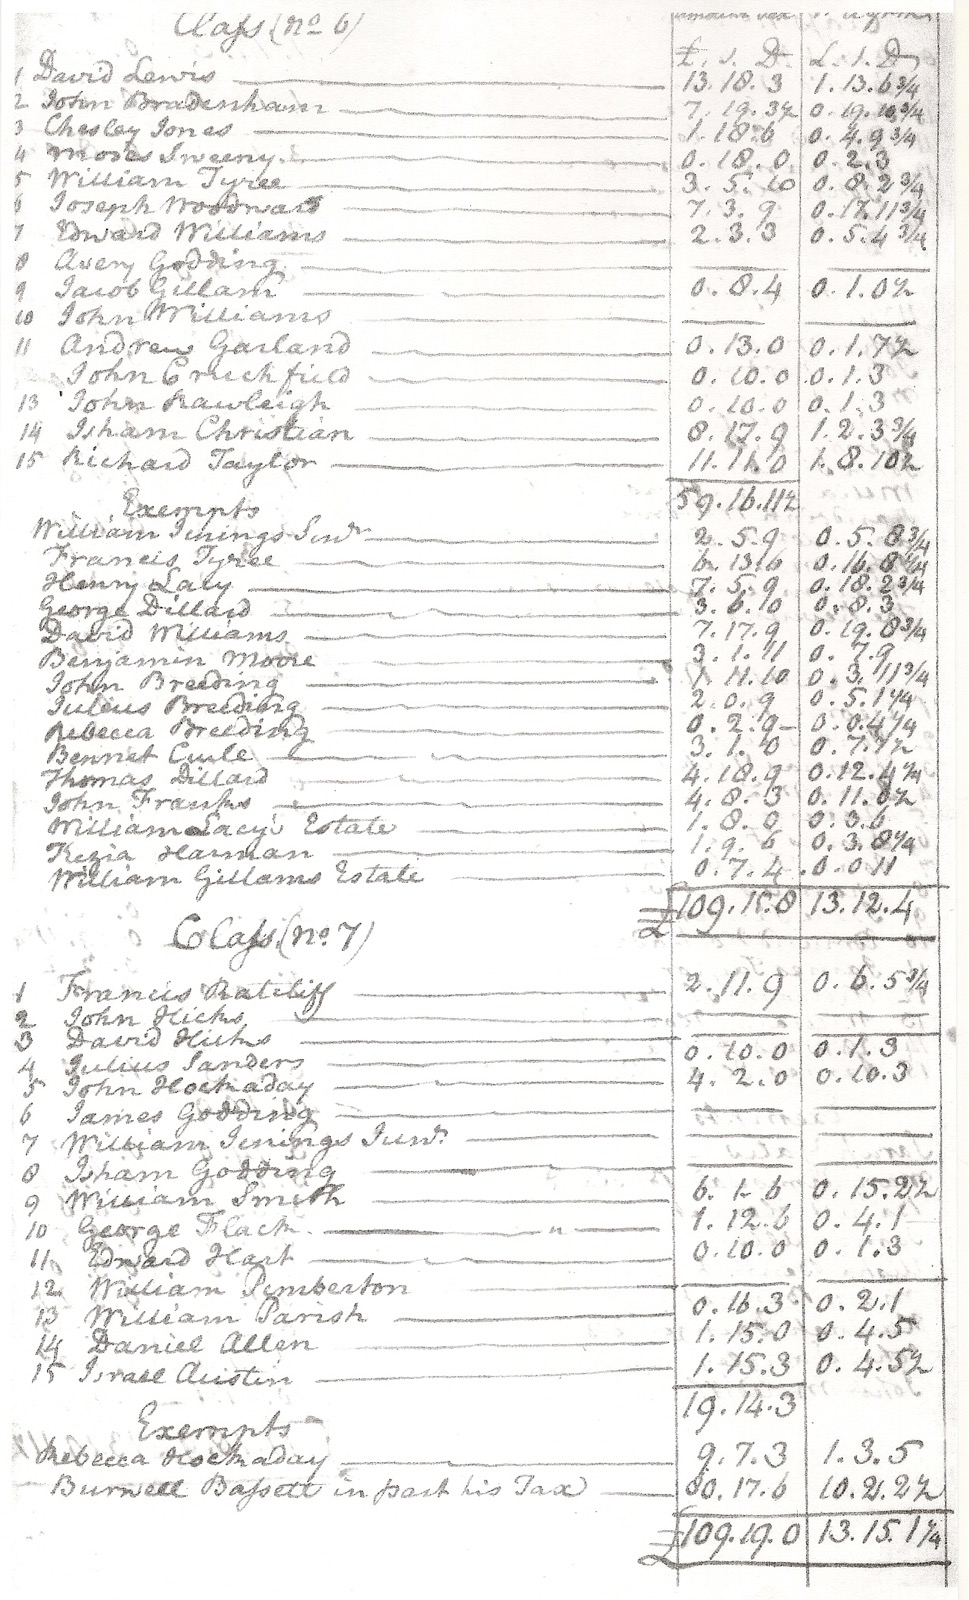 Class (No 6)
£. S. D L. S. D
1 David Lewis 13.18.3 1.13.6¾
2 John Bradenham 7.19.3½ 0.19.10¾
3 Chesley Jones 1.18.6 0.4.9¾
4 Moses Sweeny 0.18.0 0.2.3
5 William Tyree 3.5.10 0.8.2¾
6 Joseph Woodward 7.3.9 0.17.11¾
7 Edward Williams 2.3.3 0.5.4¾
8 Avery Godding
9 Jacob Gillam 0.8.4 0.1.0½
10 John Williams
11 Andrew Garland 0.13.0 0.1.7½
John Cruchfield 0.10.0 0.1.3
13 John Rawleigh 0.10.0 0.1.3
14 Isham Christian 8.17.9 1.2.3¾
15 Richard Taylor 11.11.0 1.8.10½
Exempts 59.16.11½
William Jinings Senr 2.5.9 0.5.8¾
Francis Tyree 6.13.6 0.16.8¼
Henry Lacy 7.5.9 0.18.2¾
George Dillard 3.6.10 0.8.3
David Williams 7.17.9 0.19.8¾
Benjamin Moore 3.1.11 0.7.9
John Breeding 1.11.10 0.3.11¾
Julius Breeding 2.0.9 0.5.1¼
Rebecca Breeding 0.2.9 0.0.4¼
Bennet Cule 3.1.10 0.7.7½
Thomas Dillard 4.18.9 0.12.4¼
John Franks 4.8.3 0.11.0½
William Lacy's Estate 1.8.0 0.3.6
Kezia Harman 1.9.6 0.3.8¼
William Gillams Estate 0.7.4 0.0.11
£109.15.8 13.12.4
Class (No. 7)
1 Francis Ratcliff 2.11.9 0.6.5¾
2 John Hicks
3 David Hicks
4 Julius Sanders 0.10.0 0.1.3
5 John Hockaday 4.2.0 0.10.3
6 James Godding
7 William Jinings Junr.
8 Isham Godding
9 William Smith 6.1.6 0.15.2½
10 George Flack 1.12.6 0.4.1
11 Edward Hart 0.10.0 0.1.3
12 William Pemberton
13 William Parish 0.16.3 0.2.1
14 Daniel Allen 1.15.0 0.4.5
15 Israel Austin 1.15.3 0.4.5½
19.14.3
Exempts
Rebecca Hockaday 9.7.3 1.3.5
Burwell Bassett in part his Tax 80.17.6 10.2.2½
£109.19.0 13.15.1¼